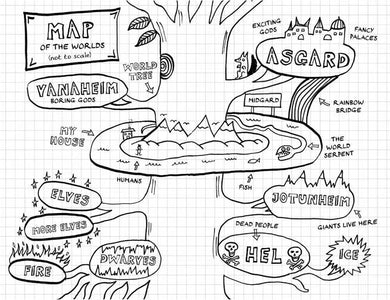 MAP
OF THE WORLDS
(not to scale)
EXCITING
GODS
FANCY
PALACES
ASGARD
WORLD
TREE
VANAHEIM
BORING GODS
MIDGARD
RAINBOW
BRIDGE
MY
HOUSE
THE
WORLD
SERPENT
HUMANS
FISH
ELVES
MORE ELVES
JOTUNHEIM
GIANTS LIVE HERE
DEAD PEOPLE
HEL
ICE
FIRE
DWARVES